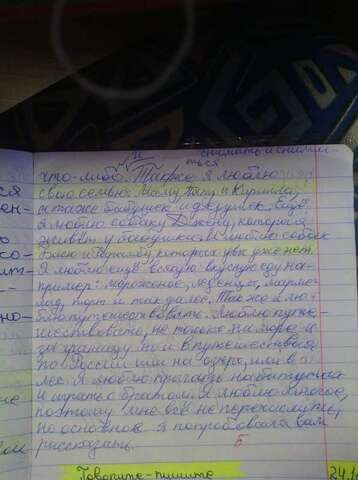 снимать и снимать-
ться
что-либо. Также я люблю
свою семью: маму, папу и Кирилла,
а также бабушек и дедушек. Ещё
я люблю собаку Джека, которая
живёт у бабушки, и люблю собак
которых увы уже нет.
Я люблю ещё всякую вкусную еду на-
пример: мороженое, леденцы, марме-
лад, торт и так далее. Также я лю-
блю путешествовать. Люблю путе-
шествовать, не только на море и
за границу но и в путешествия
по России или на озеро, или в
лес. Я люблю прыгать на батутах
и играть с братом. Я люблю многое,
поэтому мне всё не перечислить,
но основное я попробовала вам
рассказать.
5
Говорите-пишите
24.1